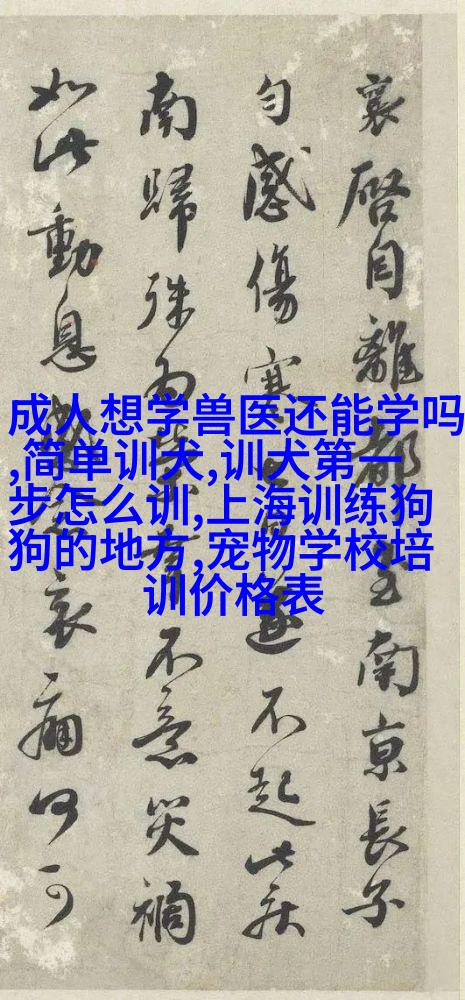 襄啓自離都至南京長子
匀感傷寒遂不起此疾
南歸殊為不意災禍
如此動息哀痛何可
成人想学兽医还能学吗
,简单训犬,训犬第一
步怎么训,上海训练狗
狗的地方,宠物学校培
训价格表